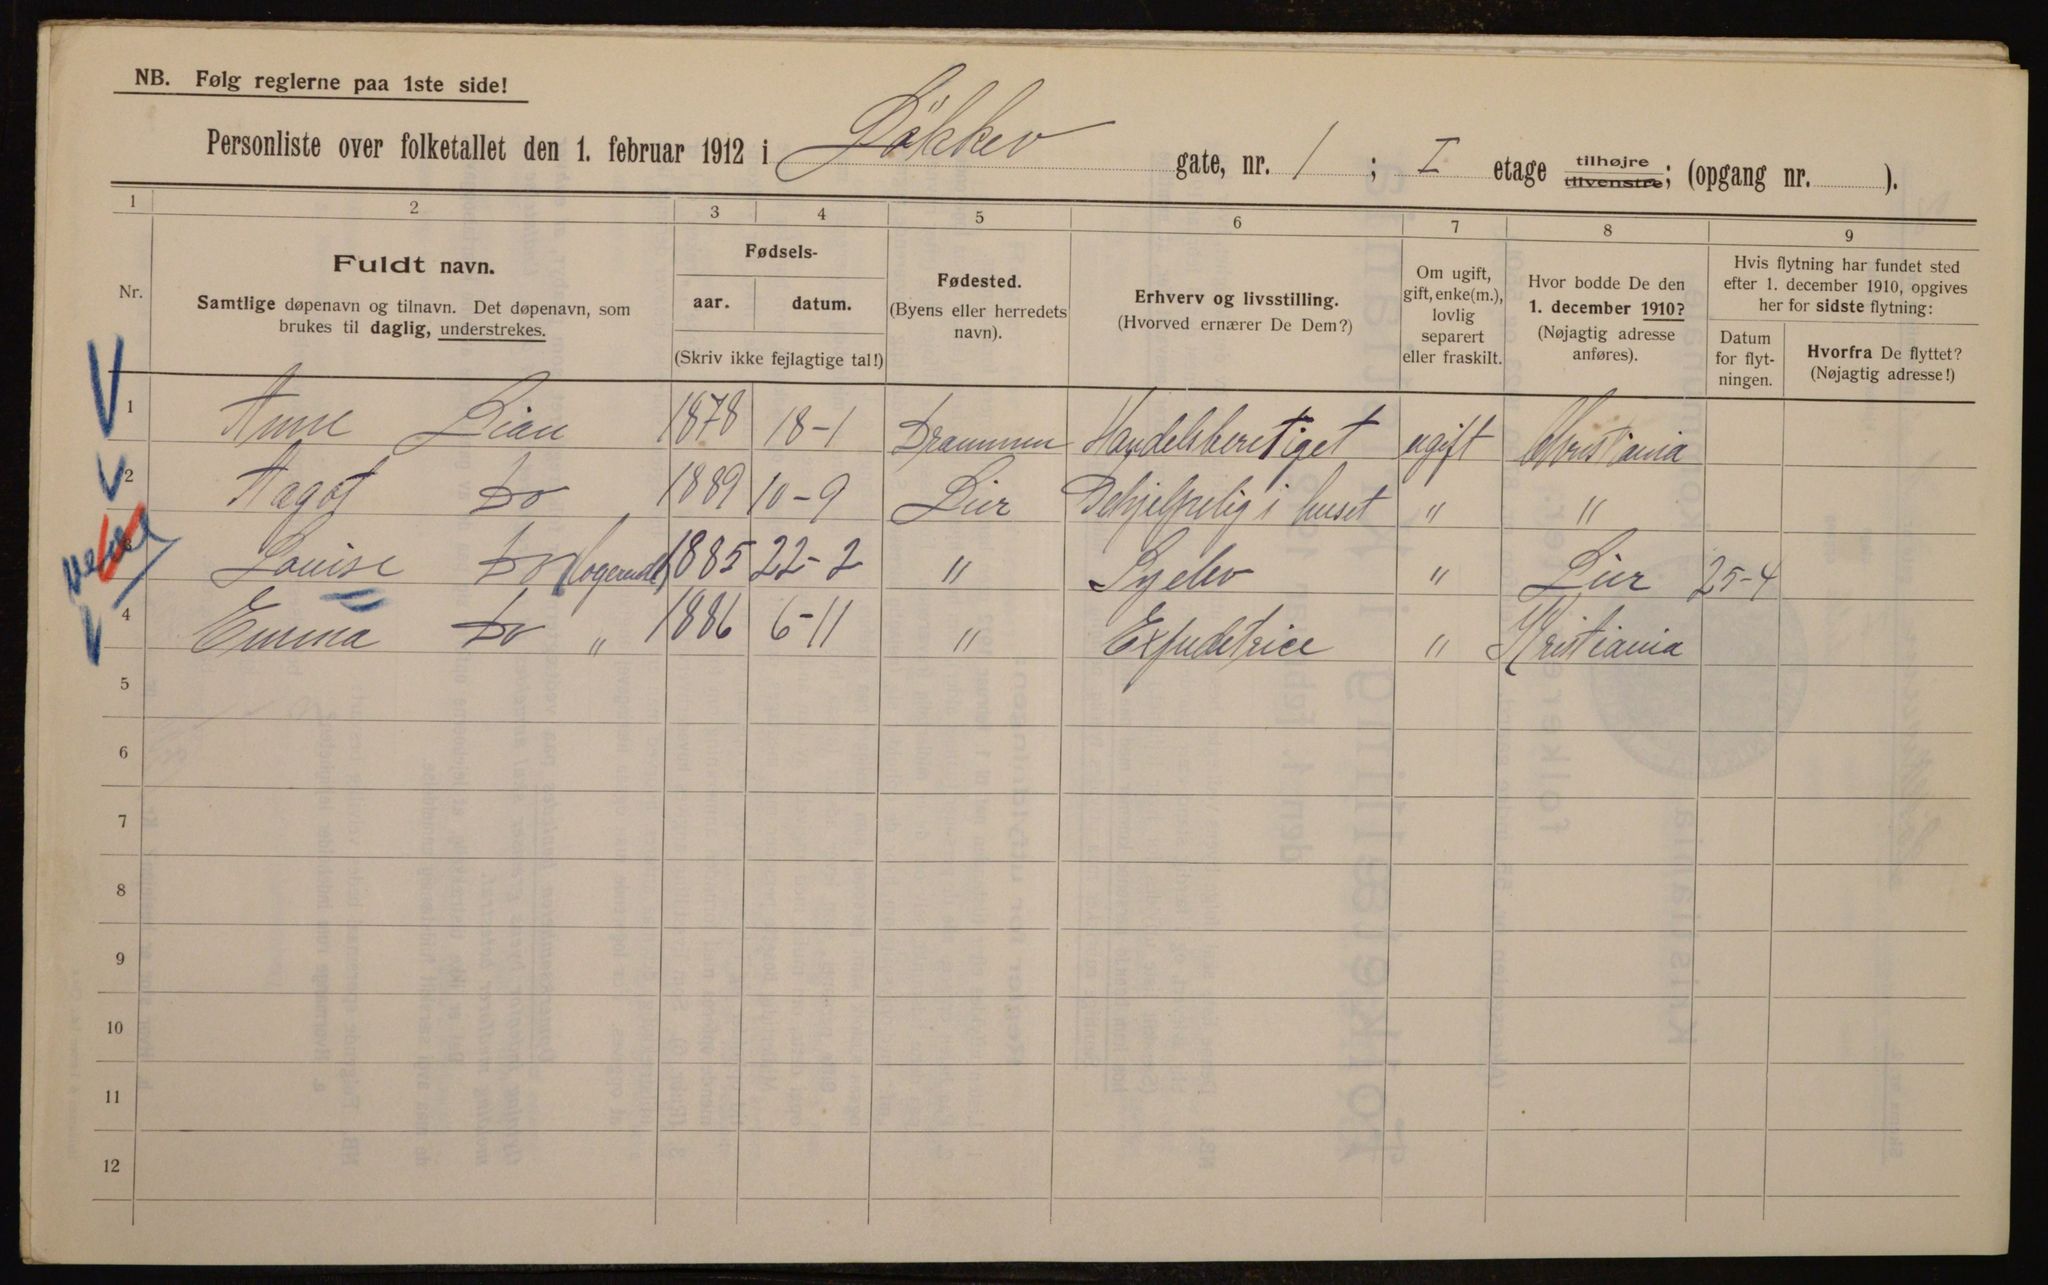 NB. Følg reglerne paa 1ste side!
Personliste over folketallet den 1. februar 1912 i Løkkev gate, nr. 1 ; I etage tilhøjre tilvenstre; (opgang nr. ).
1 2 3 4 5 6 7 8 9
Nr.
Fuldt navn.
Samtlige døpenavn og tilnavn. Det døpenavn, som
brukes til daglig, understrekes.
Fødsels-
aar. datum.
(Skriv ikke fejlagtige tal!)
Fødested.
(Byens eller herredets
navn).
Erhverv og livsstilling.
(Hvorved ernærer De Dem?)
Om ugift,
gift, enke(m.),
lovlig
separert
eller fraskilt.
Hvor bodde De den
1. december 1910?
(Nøjagtig adresse
anføres).
Hvis flytning har fundet sted
efter 1. december 1910, opgives
her for sidste flytning:
Datum
for flyt-
ningen.
Hvorfra De flyttet?
(Nøjagtig adresse!)
1 Anne Lian 1878 18-1 Drammen Handelsberetiget ugift Christiania
2 Aagot Do 1889 10-9 Lier Behjelpelig i huset " "
3 Louise Do logerende 1885 22-2 " Syelev " Lier 25-4
4 Emma Do " 1886 6-11 " Expeditrice " Kristiania
5
6
7
8
9
10
11
12